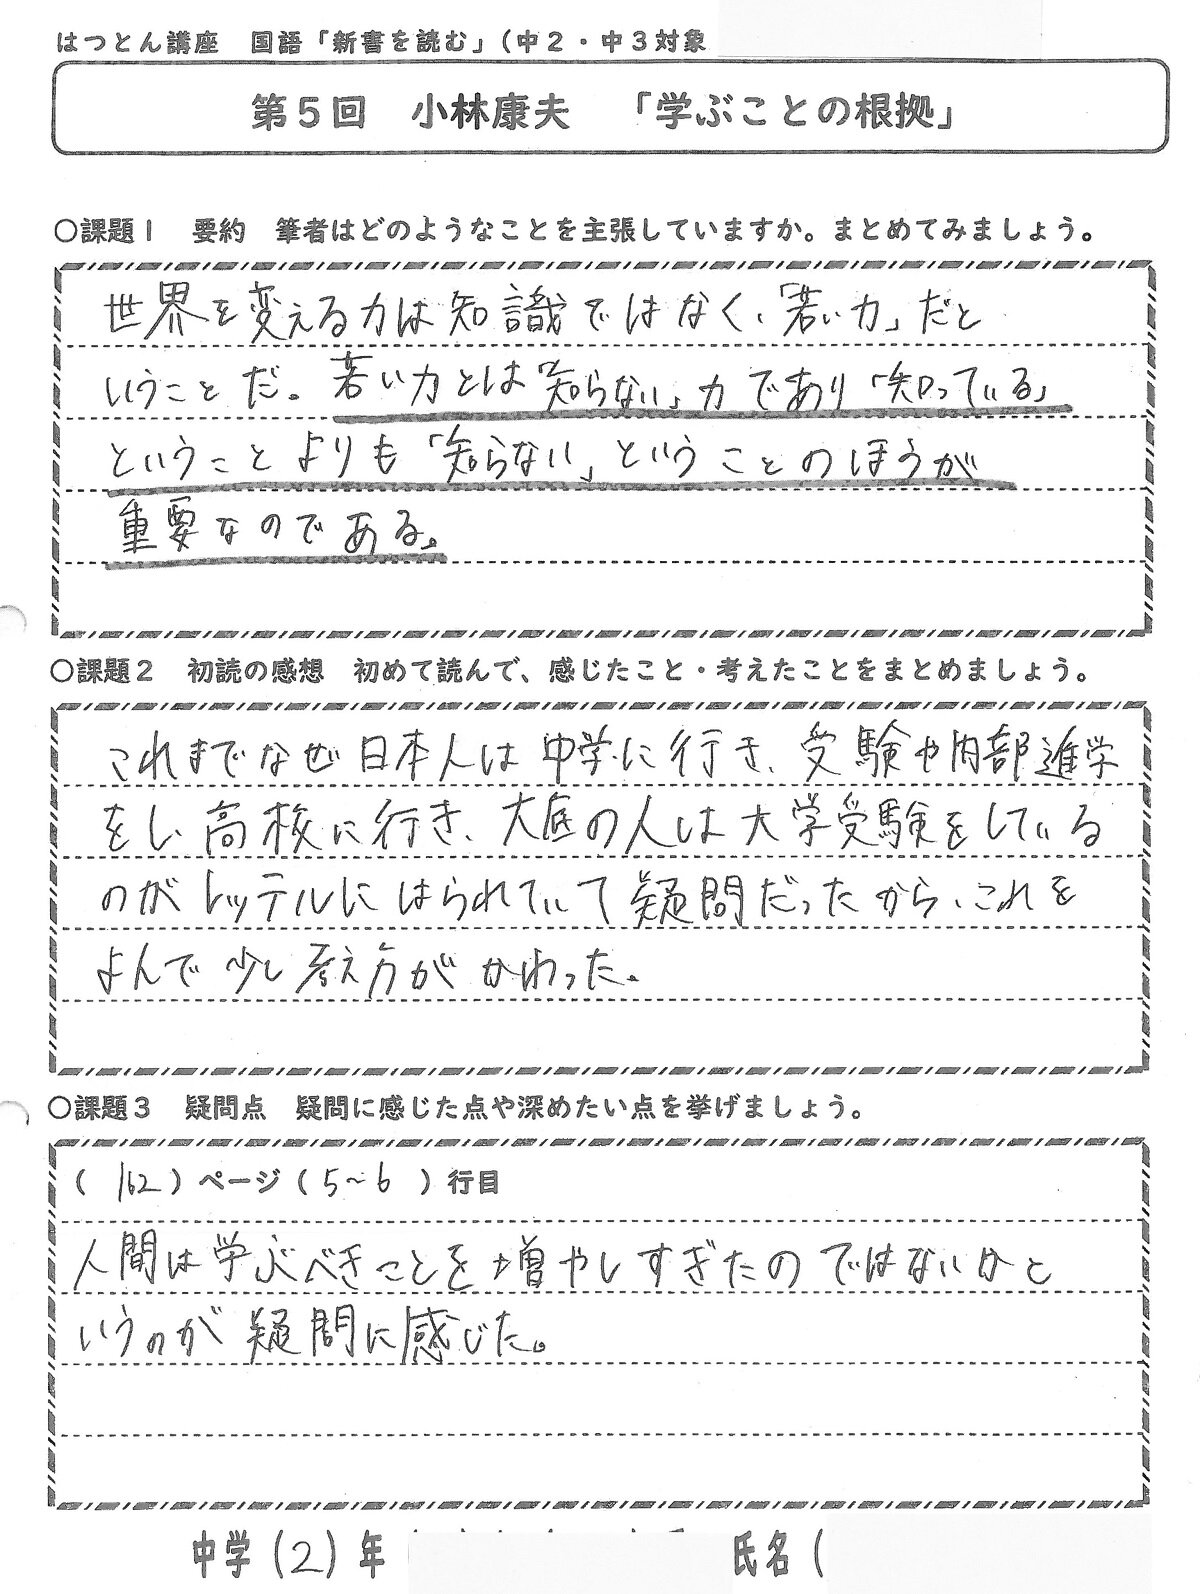 はつとん講座 国語「新書を読む」(中2・中3対象
第5回 小林康夫 「学ぶことの根拠」
○課題1 要約 筆者はどのようなことを主張していますか。まとめてみましょう。
世界を変える力は知識ではなく、「若い力」だと
いうことだ。若い力とは「知らない」力であり「知っている」
ということよりも「知らない」ということのほうが
重要なのである。
○課題2 初読の感想 初めて読んで、感じたこと・考えたことをまとめましょう。
これまでなぜ日本人は中学に行き、受験や内部進学
をし、高校に行き、大底の人は大学受験をしている
のがレッテルにはられていて疑問だったから、これを
よんで少し考え方がかわった。
○課題3 疑問点 疑問に感じた点や深めたい点を挙げましょう。
(162)ページ(5〜6)行目
人間は学ぶべきことを増やしすぎたのではないかと
いうのが疑問に感じた。
中学(2)年 氏名(